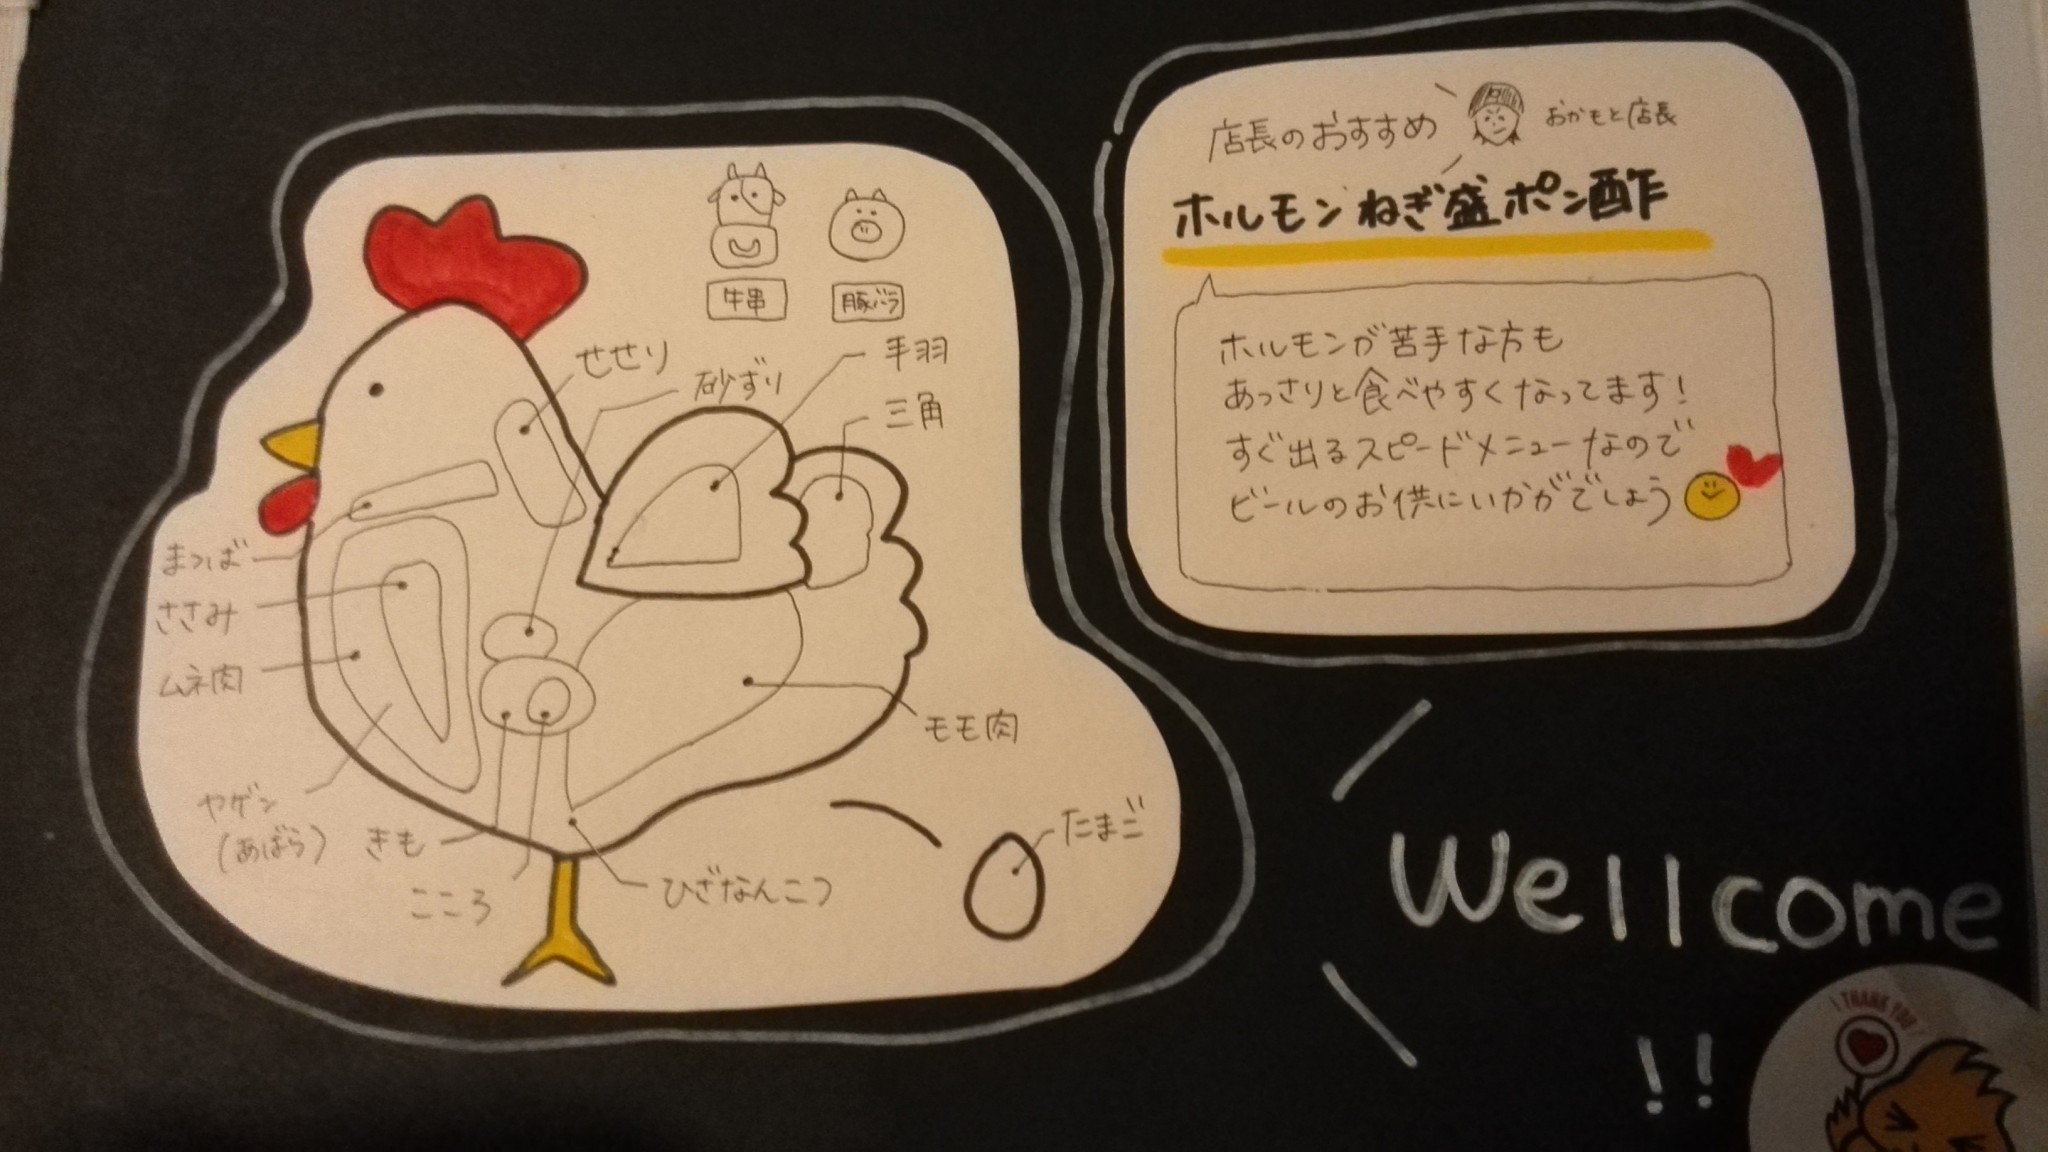 牛串
豚バラ
せせり
砂ずり
手羽
三角
まつば
ささみ
ムネ肉
ヤゲン
(あばら)
きも
こころ
ひざなんこつ
モモ肉
たまご
店長のおすすめ
おかもと店長
ホルモンねぎ盛ポン酢
ホルモンが苦手な方も
あっさりと食べやすくなってます！
すぐ出るスピードメニューなので
ビールのお供にいかがでしょう
Wellcome
!!
THANK YOU